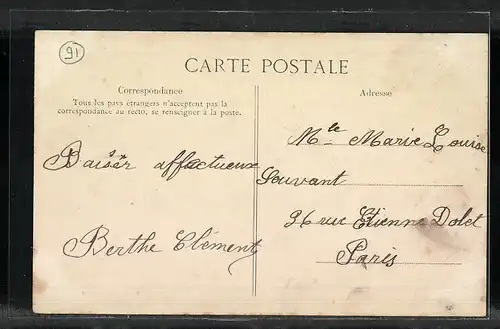 91
CARTE POSTALE
Correspondance
Tous les pays étrangers n'acceptent pas la
correspondance au recto, se renseigner à la poste.
Adresse
Baiser affectueux
Berthe Clément
Mlle Marie Louise
Souvant
36 rue Etienne Dolet
Paris